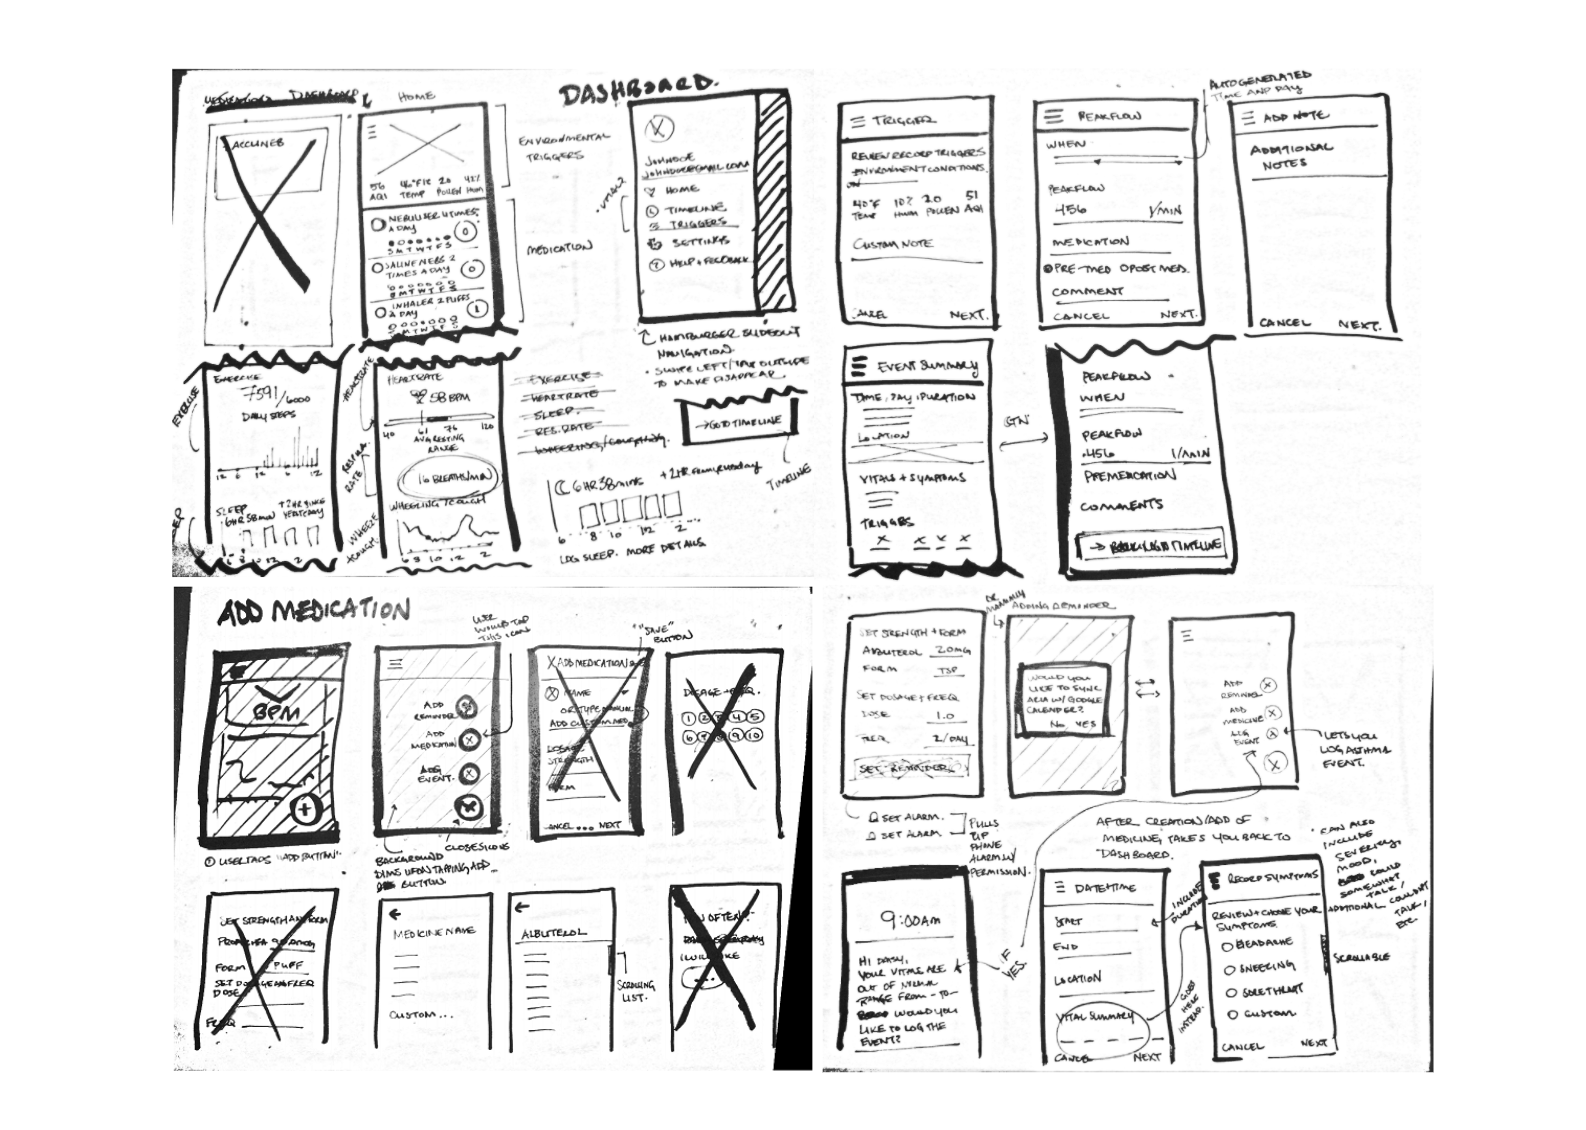 DASHBOARD
HOME
DASHBOARD.
ACCUNEB
56
AQI
TEMP
20
POLLEN
HUM
NEBULIZER 4 TIMES
A DAY
0
S M T W T F S
SALINE NEBS 2
TIMES A DAY
0
S M T W T F S
INHALER 2 PUFFS
A DAY
1
S M T W T F S
ENVIRONMENTAL
TRIGGERS
MEDICATION
JOHNDOE
JOHNDOE@GMAIL.COM
HOME
TIMELINE
TRIGGERS
SETTINGS
HELP + FEEDBACK
HAMBURGER SLIDEOUT
NAVIGATION.
• SWIPE LEFT/TAP OUTSIDE
TO MAKE DISAPPEAR.
EXERCISE
EXERCISE
7591/6000
DAILY STEPS
12 6 12 6 12
SLEEP
6HR 58MIN
+2HR SINCE
YESTERDAY
HEARTRATE
HEARTRATE
58 BPM
40 61 76 120
AVG RESTING
RANGE
RATE
16 BREATHS/MIN
WHEEZING/COUGH
6 8 10 12 2
EXERCISE
HEARTRATE
SLEEP.
RES. RATE
WHEEZING/COUGHING.
→ GO TO TIMELINE
TIMELINE
6HR 38MINS
6 8 10 12 2
LOG SLEEP. MORE DETAILS
TRIGGER
REVIEW RECORD TRIGGERS
ENVIRONMENT CONDITIONS.
40°F 10% 20 51
TEMP HUM POLLEN AQI
CUSTOM NOTE
CANCEL NEXT.
AUTOGENERATED
TIME AND DAY
PEAKFLOW
WHEN
PEAKFLOW
456 L/MIN
MEDICATION
PRE-MED O POST MED.
COMMENT
CANCEL NEXT.
ADD NOTE
ADDITIONAL
NOTES
CANCEL NEXT.
EVENT SUMMARY
TIME, DAY, DURATION
LOCATION
VITALS + SYMPTOMS
TRIGGERS
PEAKFLOW
WHEN
PEAKFLOW
.456 L/MIN
PREMEDICATION
COMMENTS
TIMELINE
ADD MEDICATION
BPM
+
① USER TAPS "ADD BUTTON"
USER
WOULD TAP
THIS ICON
ADD
REMINDER
ADD
MEDICATION
ADD
EVENT.
CLOSES ICONS
BACKGROUND
DIMS UPON TAPPING ADD
BUTTON.
"SAVE"
BUTTON
X ADD MEDICATION
NAME
OR TYPE MANUAL
ADD CUSTOM MED
STRENGTH
FORM
CANCEL ... NEXT
DOSAGE + FREQ.
1 2 3 4 5
6 7 8 9 10
SET STRENGTH AND FORM
FORM PUFF
SET DOSAGE AND FREQ
DOSE
FREQ
←
MEDICINE NAME
CUSTOM...
←
ALBUTEROL
SCROLLING
LIST.
HOW OFTEN?
SET STRENGTH + FORM
ALBUTEROL 2.0MG
FORM TSP
SET DOSAGE + FREQ
DOSE 1.0
FREQ 2/DAY
SET REMINDER
SET ALARM.
SET ALARM.
PULLS
UP
PHONE
ALARM W/
PERMISSION.
OR
MANUALLY
ADDING REMINDER
WOULD YOU
LIKE TO SYNC
ARIA W/ GOOGLE
CALENDER?
NO YES
ADD
REMINDER
ADD
MEDICINE
LOG
EVENT
LETS YOU
LOG ASTHMA
EVENT.
AFTER CREATION/ADD OF
MEDICINE, TAKES YOU BACK TO
DASHBOARD.
9:00AM
HI DAISY,
YOUR VITALS ARE
OUT OF NORMAL
RANGE FROM - TO -
WOULD YOU
LIKE TO LOG THE
EVENT?
IF
YES.
DATE + TIME
START
END
LOCATION
VITAL SUMMARY
CANCEL NEXT
INCLUDE
DURATION
GOES
HERE
INSTEAD.
RECORD SYMPTOMS
REVIEW + CHOOSE YOUR
SYMPTOMS
HEADACHE
SNEEZING
SORE THROAT
CUSTOM
CANCEL NEXT
SCROLLABLE
CAN ALSO
INCLUDE
SEVERITY,
MOOD,
COULD
SOMEWHAT
TALK /
COULDN'T
TALK,
ETC.
ADDITIONAL